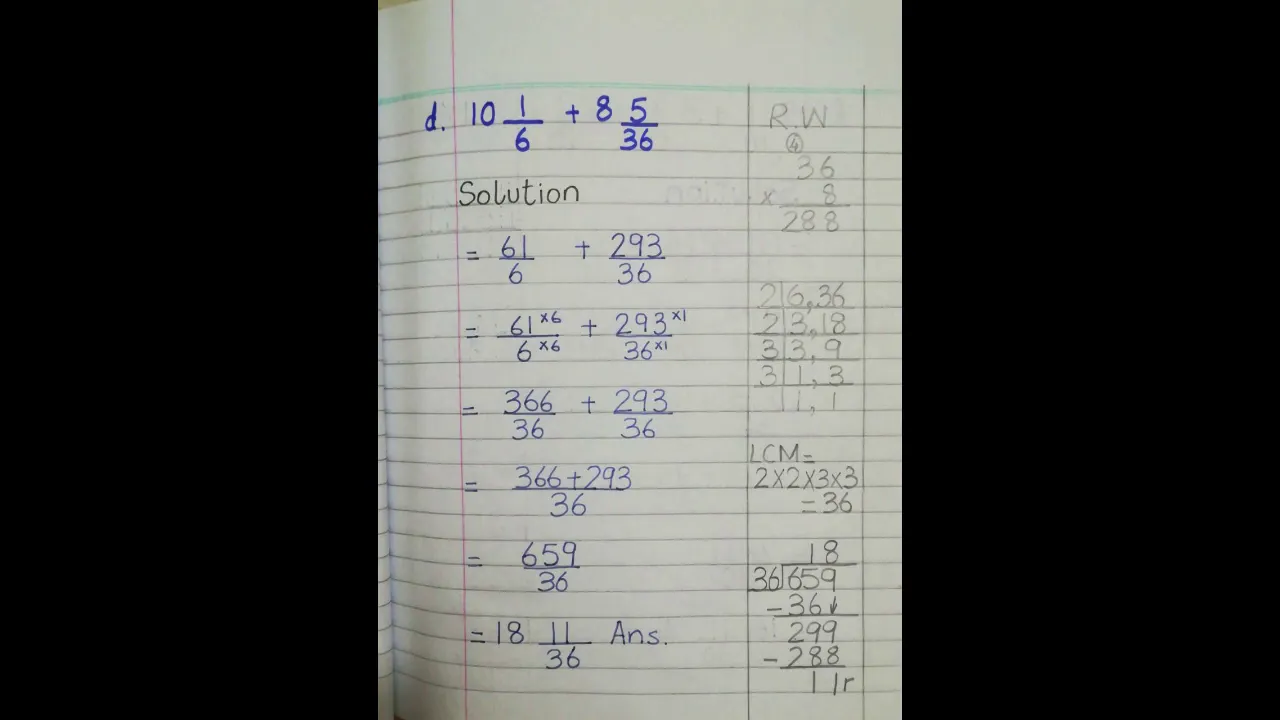 d. 10 1/6 + 8 5/36
Solution
= 61/6 + 293/36
= 61×6/6×6 + 293×1/36×1
= 366/36 + 293/36
= 366+293/36
= 659/36
= 18 11/36 Ans.
R.W
④
36
× 8
288
2|6,36
2|3,18
3|3,9
3|1,3
|1,1
LCM=
2×2×3×3
=36
18
36|659
-36↓
299
-288
11r